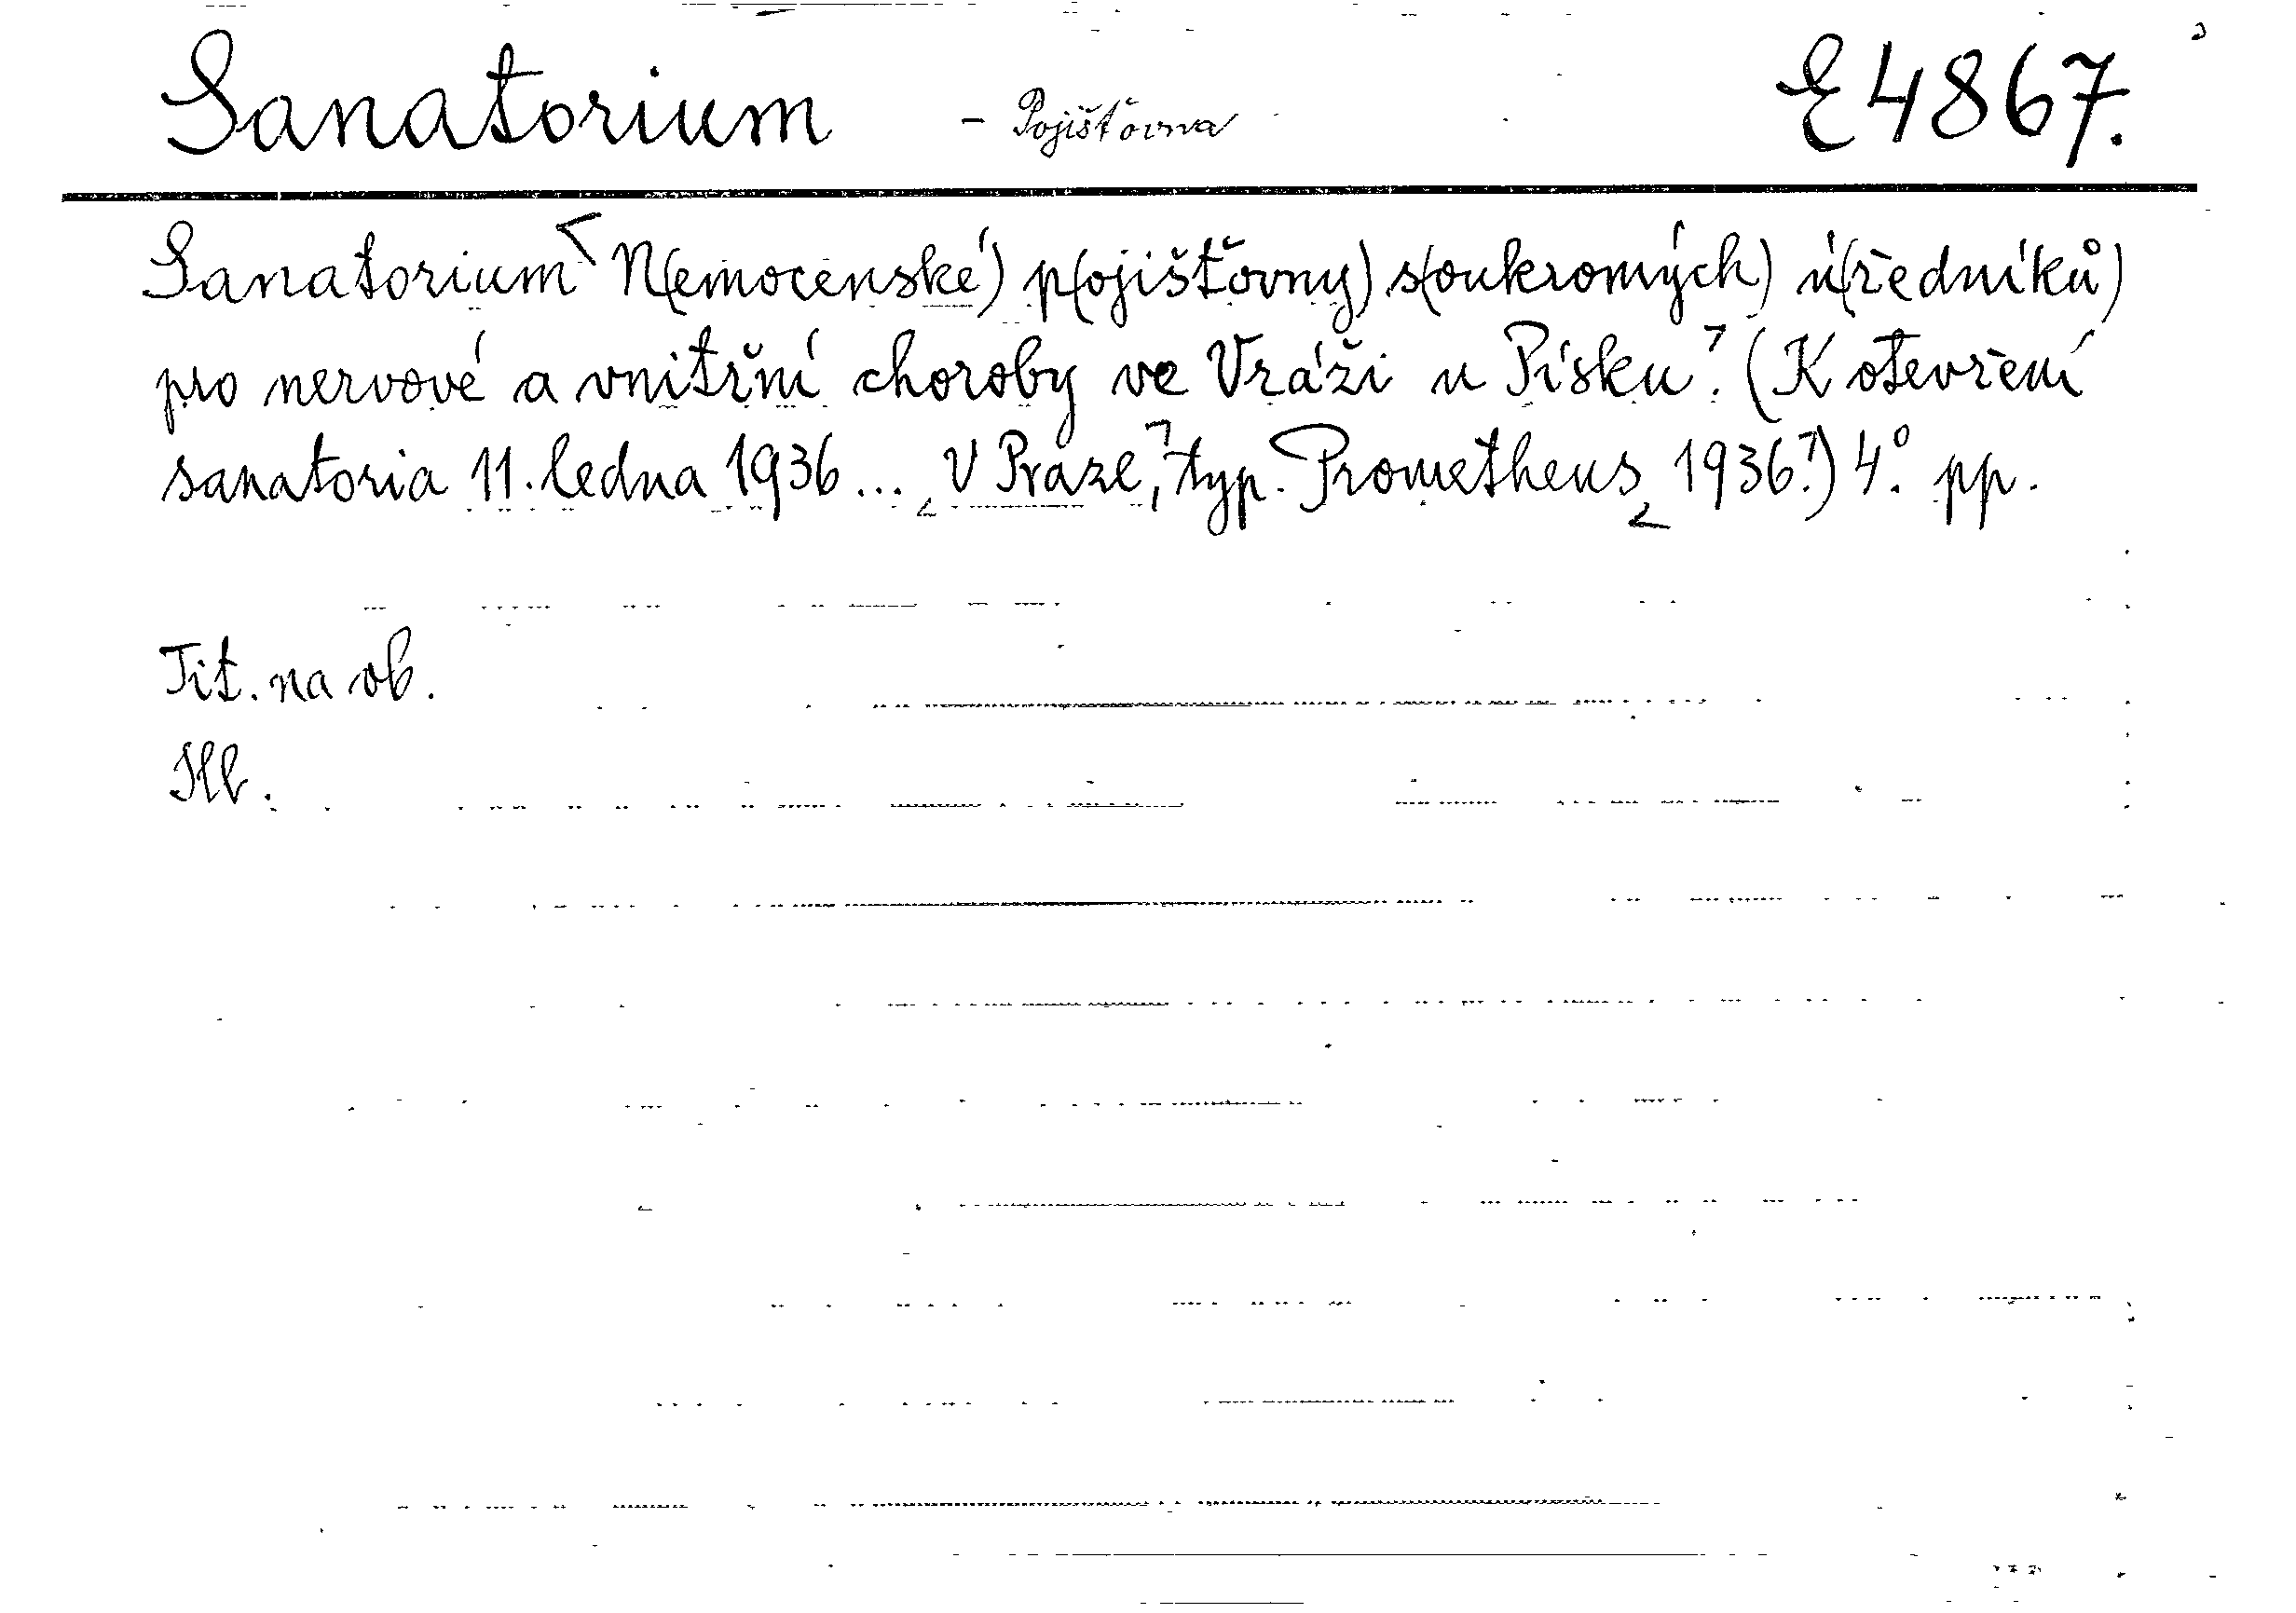 Sanatorium - Pojišťovna E 4867.
Sanatorium N(emocenské) p(ojišťovny) s(oukromých) ú(ředníků)
pro nervové a vnitřní choroby ve Vráži u Písku. (K otevření
sanatoria 11. ledna 1936... V Praze, typ. Prometheus 1936.) 4.° pp.
Tit. na ob.